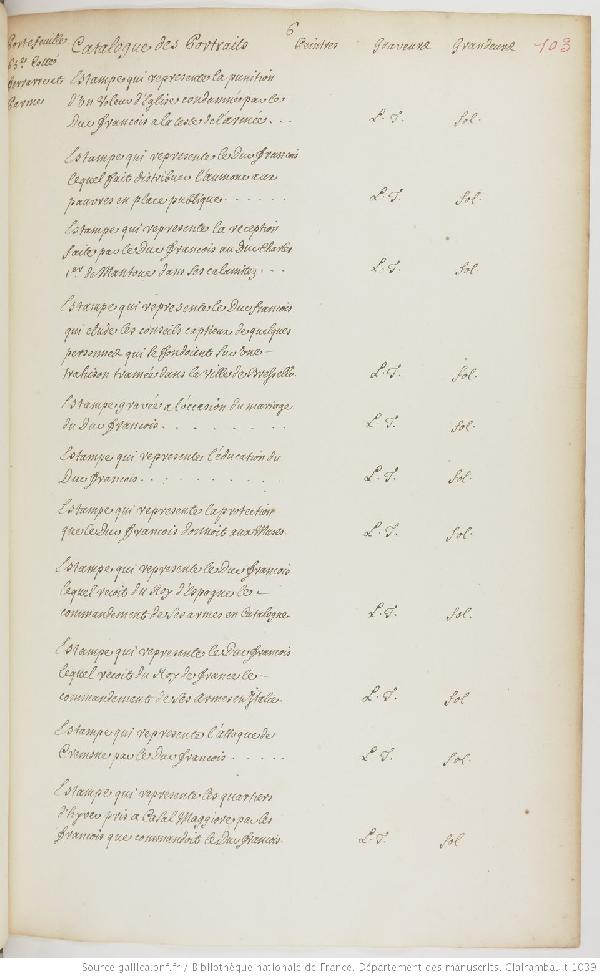 6
103
Portefeuilles
Catalogue des Portraits Peintres Graveurs Grandeurs
Estampe qui represente la punition
d'un Voleur d'Eglise condamnée par le
Duc francois a la teste de l'armée. . . L. T. fol.
Estampe qui represente le Duc francois
lequel fait distribuer l'aumone aux
pauvres en place publique. . . . . . L. T. fol.
Estampe qui represente la reception
faite par le Duc francois au Duc Charles
1er de Mantoue dans ses calamitez. . . L. T. fol.
Estampe qui represente le Duc francois
qui elude les conseils captieux de quelques
personnes qui le fondoient sur une
trahison tramée dans la ville de Bressello. L. T. fol.
Estampe gravée a l'occasion du mariage
du Duc francois. . . . . . . . L. T. fol.
Estampe qui represente l'éducation du
Duc francois. . . . . . . . L. T. fol.
Estampe qui represente la protection
que le Duc francois donnoit aux Muses. L. T. fol.
Estampe qui represente le Duc francois
lequel recoit du Roy d'Espagne le
commandement de ses armes en Catalogne. L. T. fol.
Estampe qui represente le Duc francois
lequel recoit du Roy de france le
commandement de ses Armes en Italie. L. T. fol
Estampe qui represente l'attaque de
Cremone par le Duc francois. . . . . . L. T. fol.
Estampe qui represente les quartiers
d'hyver pris a Casal Maggiore par les
francois que commandoit le Duc francois. L. T. fol
Source gallica.bnf.fr / Bibliothèque nationale de France. Département des manuscrits. Clairambault 1039